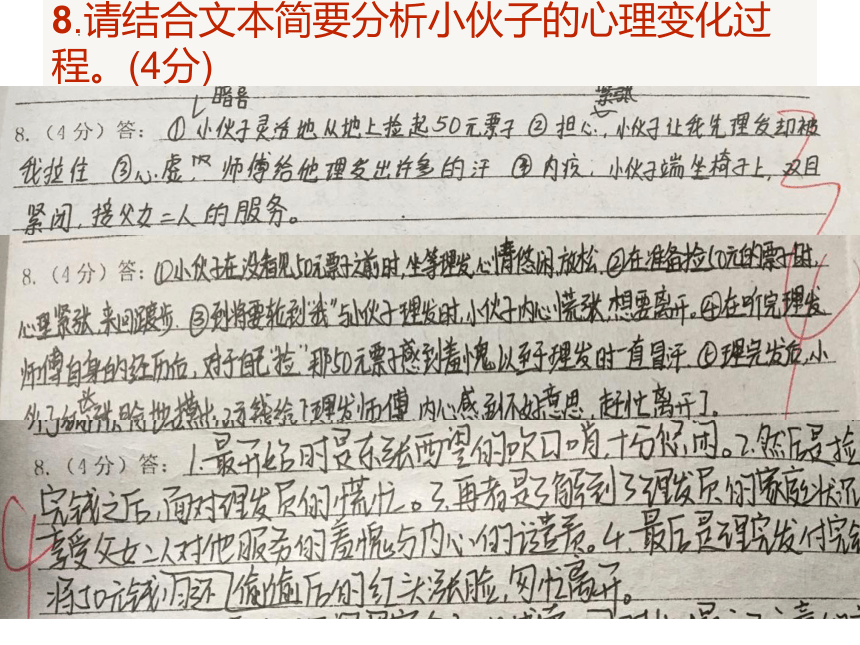 8.请结合文本简要分析小伙子的心理变化过
程。(4分)
暗喜 紧张
8.(4分)答: ①小伙子灵活地从地上捡起50元票子 ②担心,小伙子让我先理发却被
我拉住 ③心虚, 师傅给他理发出许多的汗 ④内疚,小伙子端坐椅子上,双目
紧闭,接父女二人的服务。
8.(4分)答:①小伙子在没看见50元票子之前时,坐等理发,心情悠闲,放松.②在准备捡50元的票子时,
心里紧张,来回踱步.③到将要轮到"我"与小伙子理发时,小伙子内心慌张,想要离开。④在听完理发
师傅自身的经历后,对于自己"捡"那50元票子感到羞愧,以至于理发时一直冒汗.⑤理完发后,小
理发师傅,内心感到不好意思,赶忙离开了。
8.(4分)答:1.最开始时是东张西望的吹口哨,十分悠闲。2.然后是捡
完钱之后,面对理发员的慌忙。3.再者是了解到了理发员的家庭状况
享受父女二人对他服务的羞愧与内心的谴责。4.最后是理完发付完钱
将50元钱归还偷偷后的红头涨脸,匆忙离开。